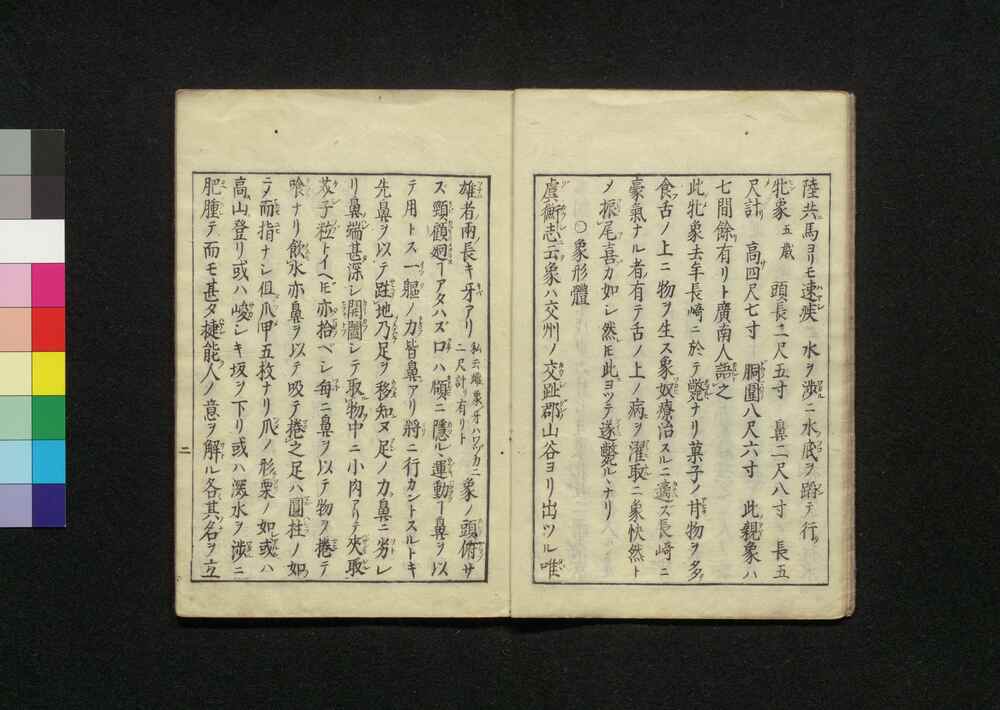 陸共馬ヨリモ速疾　水ヲ渉ニ水底ヲ蹈テ行
牝象五歳　頭長一尺五寸　鼻二尺八寸　長五
尺計　高四尺七寸　胴圍八尺六寸　此親象ハ
七間餘有リト廣南人語之
此牝象去年長崎ニ於テ斃ナリ菓子ノ甘物ヲ多
食舌ノ上ニ物ヲ生ス象奴療治スルニ違ズ長崎ニ
豪氣ナル者有テ舌ノ上ノ病ヲ濯取ニ象快然ト
ノ振尾喜カ如シ然𪜈此ヨツテ遂斃ルヽナリ
〇象形體
虞衡志云象ハ交州ノ交趾郡山谷ヨリ出ツル唯
雄者兩長キ牙アリ私云雌象牙ハワヅカニ二尺計リ有リト象ノ頭俯サ
ズ頸顧廻ヿアタハズ口ハ頤ニ隱ル運動ヿ鼻ヲ以
テ用トス一軀ノ力皆鼻アリ將ニ行カントスルトキ
先鼻ヲ以テ跓地乃足ヲ移知ヌ足ノ力鼻ニ劣レ
リ鼻端甚深シ開闔シテ取物中ニ小肉アリテ夾取
芥子粒トイヘ𪜈亦拾ベシ毎ニ鼻ヲ以テ物ヲ捲テ
喰ナリ飲水亦鼻ヲ以テ吸テ捲之足ハ圓柱ノ如
ニノ而指ナシ但爪甲五枚ナリ爪ノ形栗ノ如或ハ
高山登リ或ハ峻シキ坂ヲ下リ或ハ深水ヲ渉ニ
肥腫テ而モ甚タ捷能人ノ意ヲ解ル各其名ヲ立
二